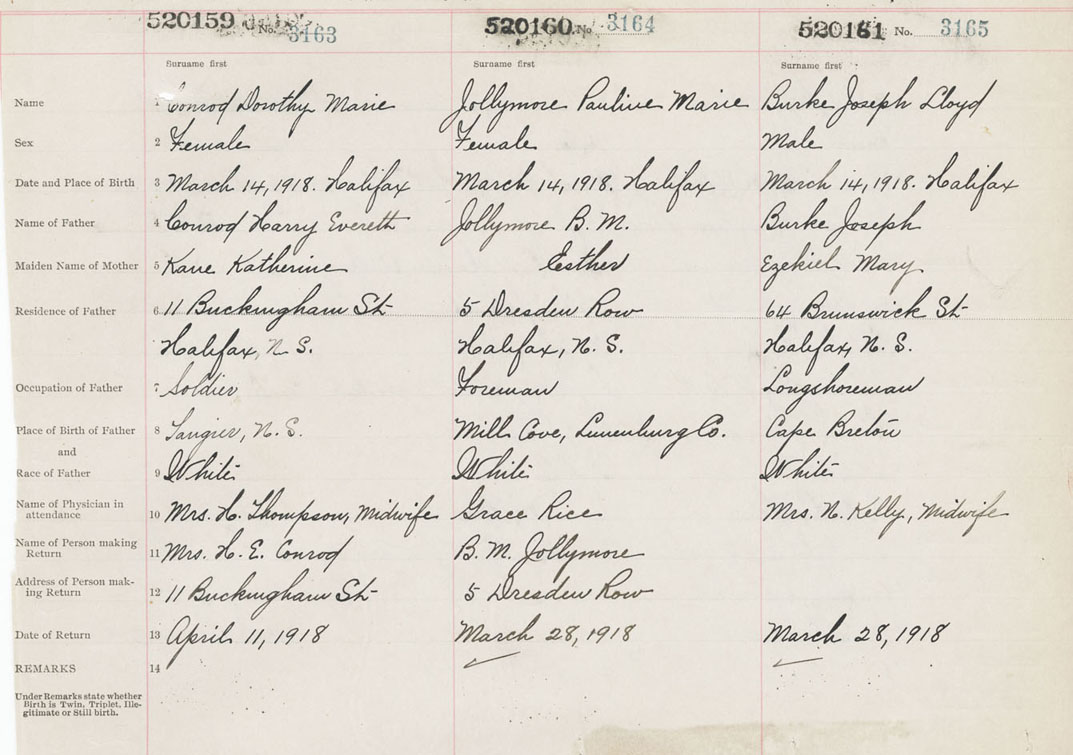 520159 No. 3163 520160 No. 3164 520161 No. 3165
Surname first Surname first Surname first
Name 1 Conrod Dorothy Marie Jollymore Pauline Marie Burke Joseph Lloyd
Sex 2 Female Female Male
Date and Place of Birth 3 March 14, 1918. Halifax March 14, 1918. Halifax March 14, 1918. Halifax
Name of Father 4 Conrod Harry Everett Jollymore B. M. Burke Joseph
Maiden Name of Mother 5 Kane Katherine Esther Ezekiel Mary
Residence of Father 6 11 Buckingham St 5 Dresden Row 64 Brunswick St
Halifax, N. S. Halifax, N. S. Halifax, N. S.
Occupation of Father 7 Soldier Foreman Longshoreman
Place of Birth of Father 8 Tangier, N. S. Mill Cove, Lunenburg Co. Cape Breton
and
Race of Father 9 White White White
Name of Physician in
attendance 10 Mrs. H. Thompson, Midwife Grace Rice Mrs. N. Kelly, Midwife
Name of Person making
Return 11 Mrs. H. E. Conrod B. M. Jollymore
Address of Person mak-
ing Return 12 11 Buckingham St 5 Dresden Row
Date of Return 13 April 11, 1918 March 28, 1918 March 28, 1918
REMARKS 14
Under Remarks state whether
Birth is Twin, Triplet, Ille-
gitimate or Still birth.